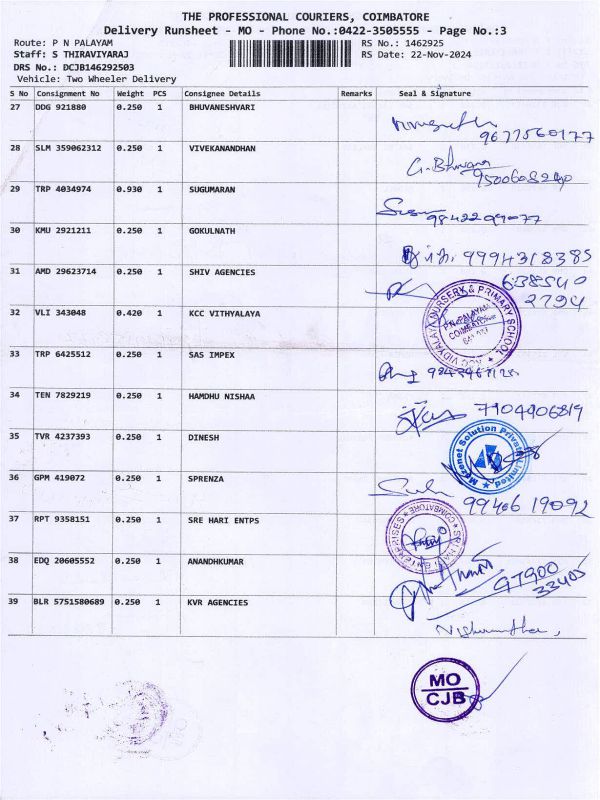 THE PROFESSIONAL COURIERS, COIMBATORE
Delivery Runsheet - MO - Phone No.:0422-3505555 - Page No.:3
Route: P N PALAYAM RS No.: 1462925
Staff: S THIRAVIYARAJ RS Date: 22-Nov-2024
DRS No.: DCJB146292503
Vehicle: Two Wheeler Delivery
S No Consignment No Weight PCS Consignee Details Remarks Seal & Signature
27 DDG 921880 0.250 1 BHUVANESHVARI
9677560177
28 SLM 359062312 0.250 1 VIVEKANANDHAN
G. Bhuvana
29 TRP 4034974 0.930 1 SUGUMARAN
30 KMU 2921211 0.250 1 GOKULNATH
9994318385
31 AMD 29623714 0.250 1 SHIV AGENCIES
638540
2794
32 VLI 343048 0.420 1 KCC VITHYALAYA
VIDYALAYA NURSERY & PRIMARY SCHOOL
P.N. PALAYAM
33 TRP 6425512 0.250 1 SAS IMPEX
34 TEN 7829219 0.250 1 HAMDHU NISHAA
7104906819
35 TVR 4237393 0.250 1 DINESH
Solution Private Limited
36 GPM 419072 0.250 1 SPRENZA
99406 19092
37 RPT 9358151 0.250 1 SRE HARI ENTPS
SRI HARI ENTERPRISES
COIMBATORE
38 EDQ 20605552 0.250 1 ANANDHKUMAR
39 BLR 5751580689 0.250 1 KVR AGENCIES
MO
CJB